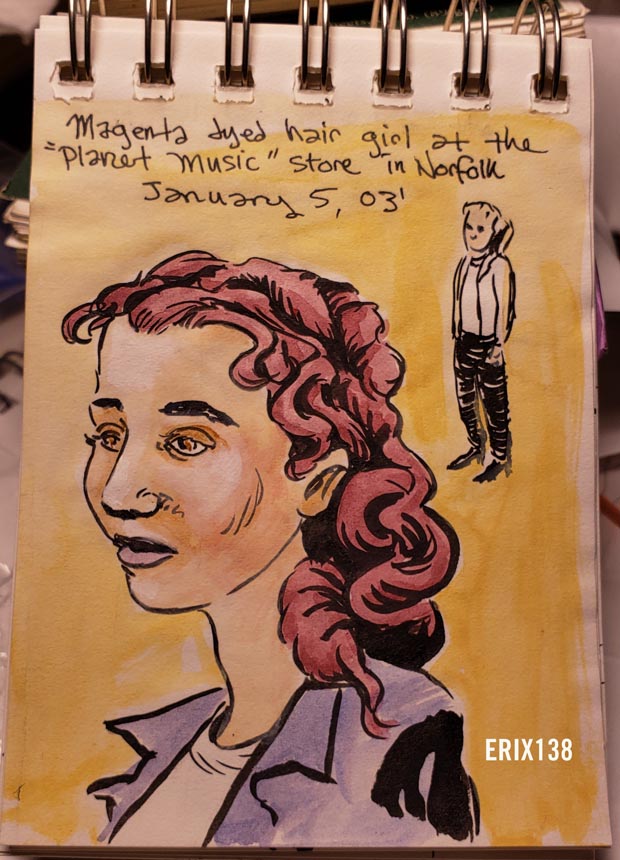 Magenta dyed hair girl at the
"Planet Music" store in Norfolk
January 5, 03'
ERIX138